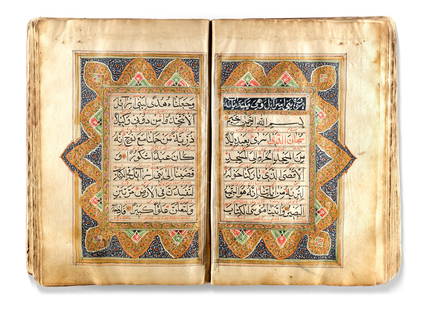 سورة بني اسرائيل
بسم الله الرحمن الرحيم
سبحان الذي اسرى بعبده ليلا
من المسجد الحرام الى المسجد
الاقصى الذي باركنا حوله
لنريه من اياتنا انه هو
السميع البصير واتينا موسى الكتاب
وجعلناه هدى لبني اسرائيل
الا تتخذوا من دوني وكيلا
ذرية من حملنا مع نوح انه
كان عبدا شكورا وقضينا
الى بني اسرائيل في الكتاب
لتفسدن في الارض مرتين
ولتعلن علوا كبيرا فاذا